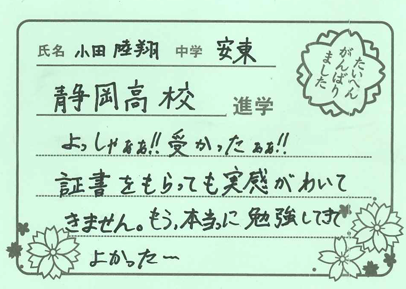 氏名 小田 陸翔 中学 安東
たいへん
がんばり
ました
静岡高校 進学
よっしゃぁぁ!!受かったぁぁ!!
証書をもらっても実感がわいて
きません。もう、本当に勉強してきて
よかったー